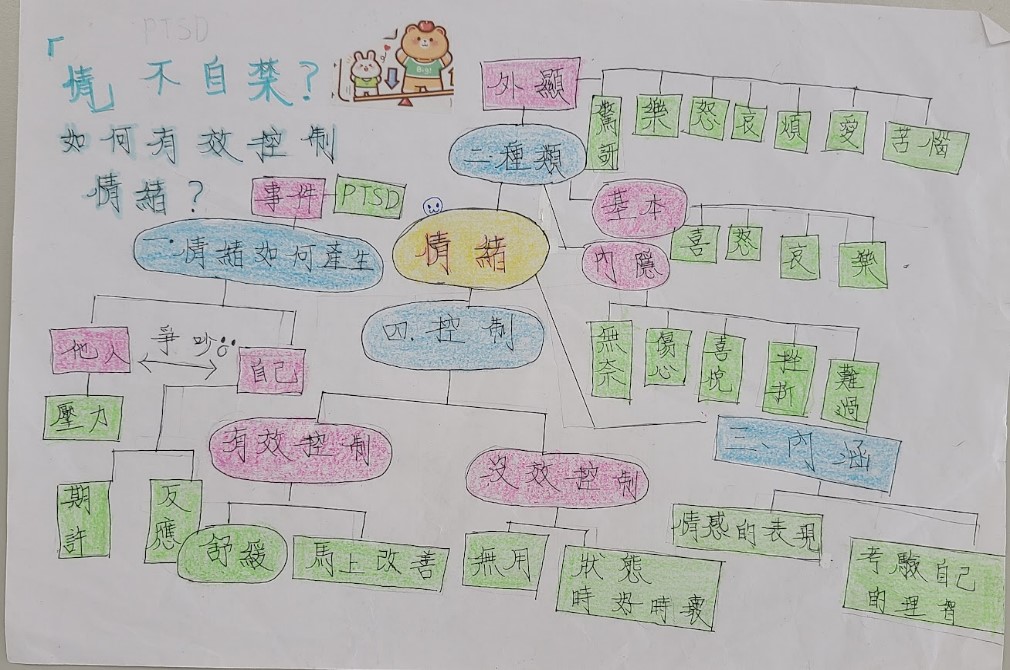 PTSD
「情」不自禁?
如何有效控制
情緒?
外顯
驚訝
樂
怒
哀
煩
愛
苦惱
二種類
基本
喜
怒
哀
樂
內隱
無奈
傷心
喜悅
挫折
難過
事件
PTSD
情緒
一.情緒如何產生
他人
爭吵
自己
壓力
期許
反應
四.控制
有效控制
舒緩
馬上改善
沒效控制
無用
狀態
時好時壞
三、內涵
情感的表現
考驗自己
的理智